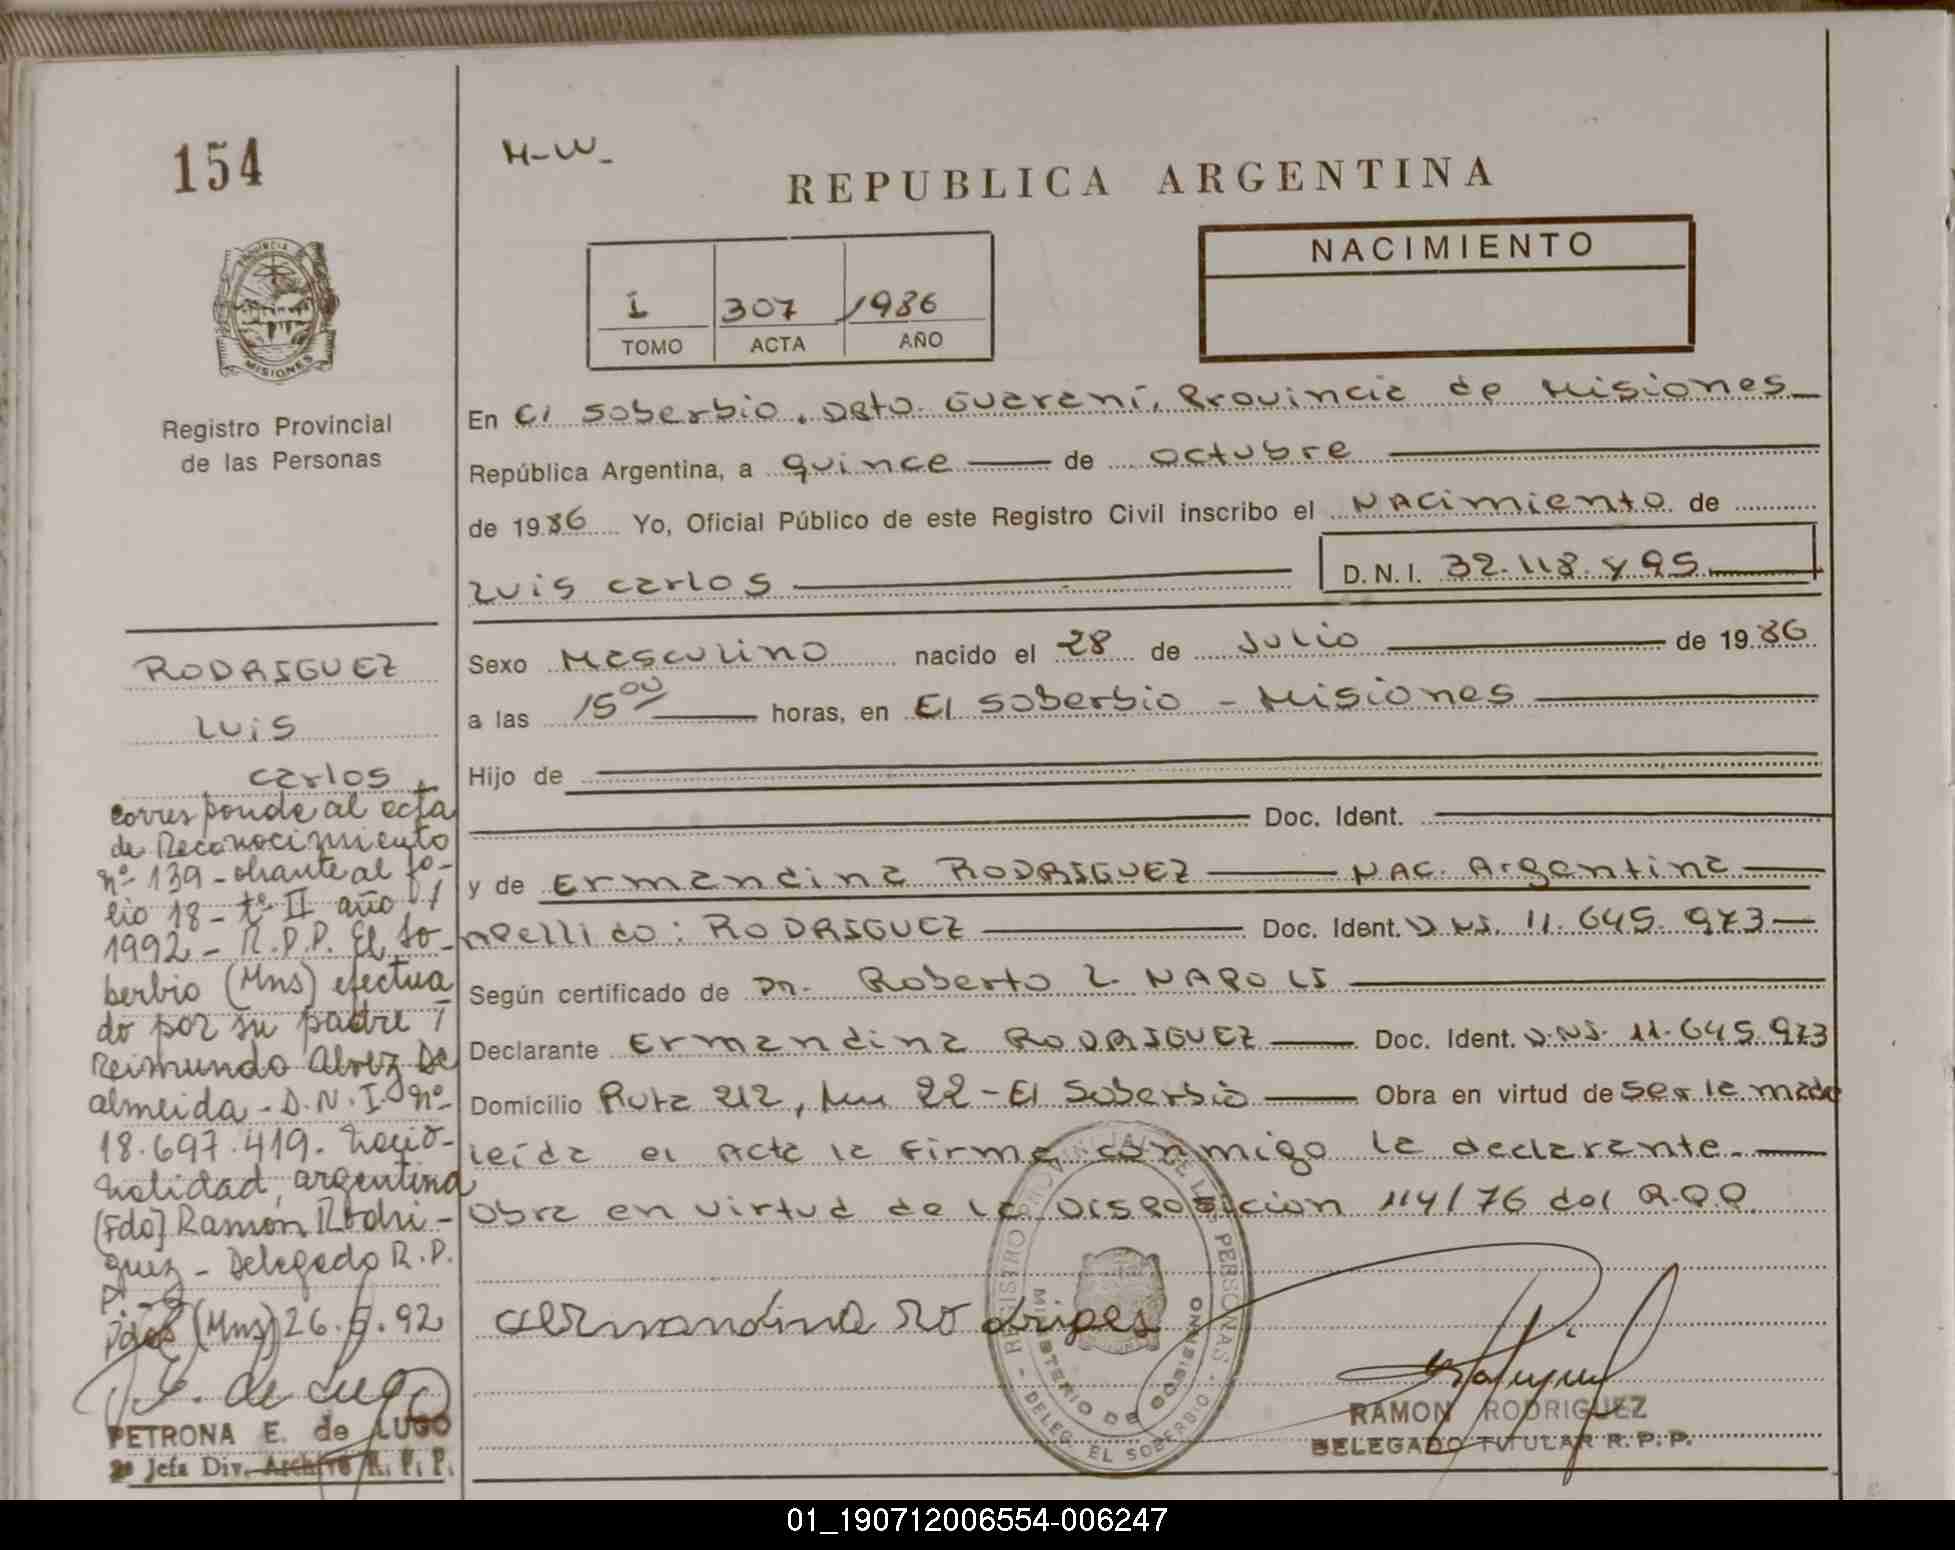 154
H-W-
REPUBLICA ARGENTINA
PROVINCIA DE
MISIONES
Registro Provincial
de las Personas
I 307 1986
TOMO ACTA AÑO
NACIMIENTO
En El Soberbio. Dpto. Guaraní, Provincia de Misiones
República Argentina, a quince de octubre
de 1986 Yo, Oficial Público de este Registro Civil inscribo el Nacimiento de
Luis Carlos D.N.I. 32.118.495
Sexo Masculino nacido el 28 de Julio de 1986
a las 15 00 horas, en El Soberbio - Misiones
Hijo de
Doc. Ident.
y de Ermandina RODRIGUEZ NAC. Argentina
Apellido: RODRIGUEZ Doc. Ident. D.N.I. 11.645.973
Según certificado de Dr. Roberto L. NAPOLI
Declarante Ermandina RODRIGUEZ Doc. Ident. D.N.I. 11.645.973
Domicilio Ruta 212, km 22 - El Soberbio Obra en virtud de ser la madre
leída el Acta la firma conmigo la declarante.
Obra en virtud de la Disposicion 114/76 del R.P.P.
RODRIGUEZ
Luis
Carlos
Corresponde al acta
de Reconocimiento
nº 139 - obrante al fo-
lio 18 - tº II año
1992 - R.P.P. El So-
berbio (Mns) efectua
do por su padre
Reimundo Alvez De
almeida - D.N.I. nº
18.697.419. Nacio-
nalidad, argentina
(Fdo) Ramón Rodri-
guez - Delegado R.P.
P.
Pdas (Mns) 26.5.92
P. E. de Lugo
PETRONA E. de LUGO
2ª Jefa Div. Archivo R. P. P.
aermandina rodriges
REGISTRO PROVINCIAL DE LAS PERSONAS
MINISTERIO DE GOBIERNO
- DELEG. EL SOBERBIO -
RAMON RODRIGUEZ
DELEGADO TITULAR R. P. P.
01_190712006554-006247